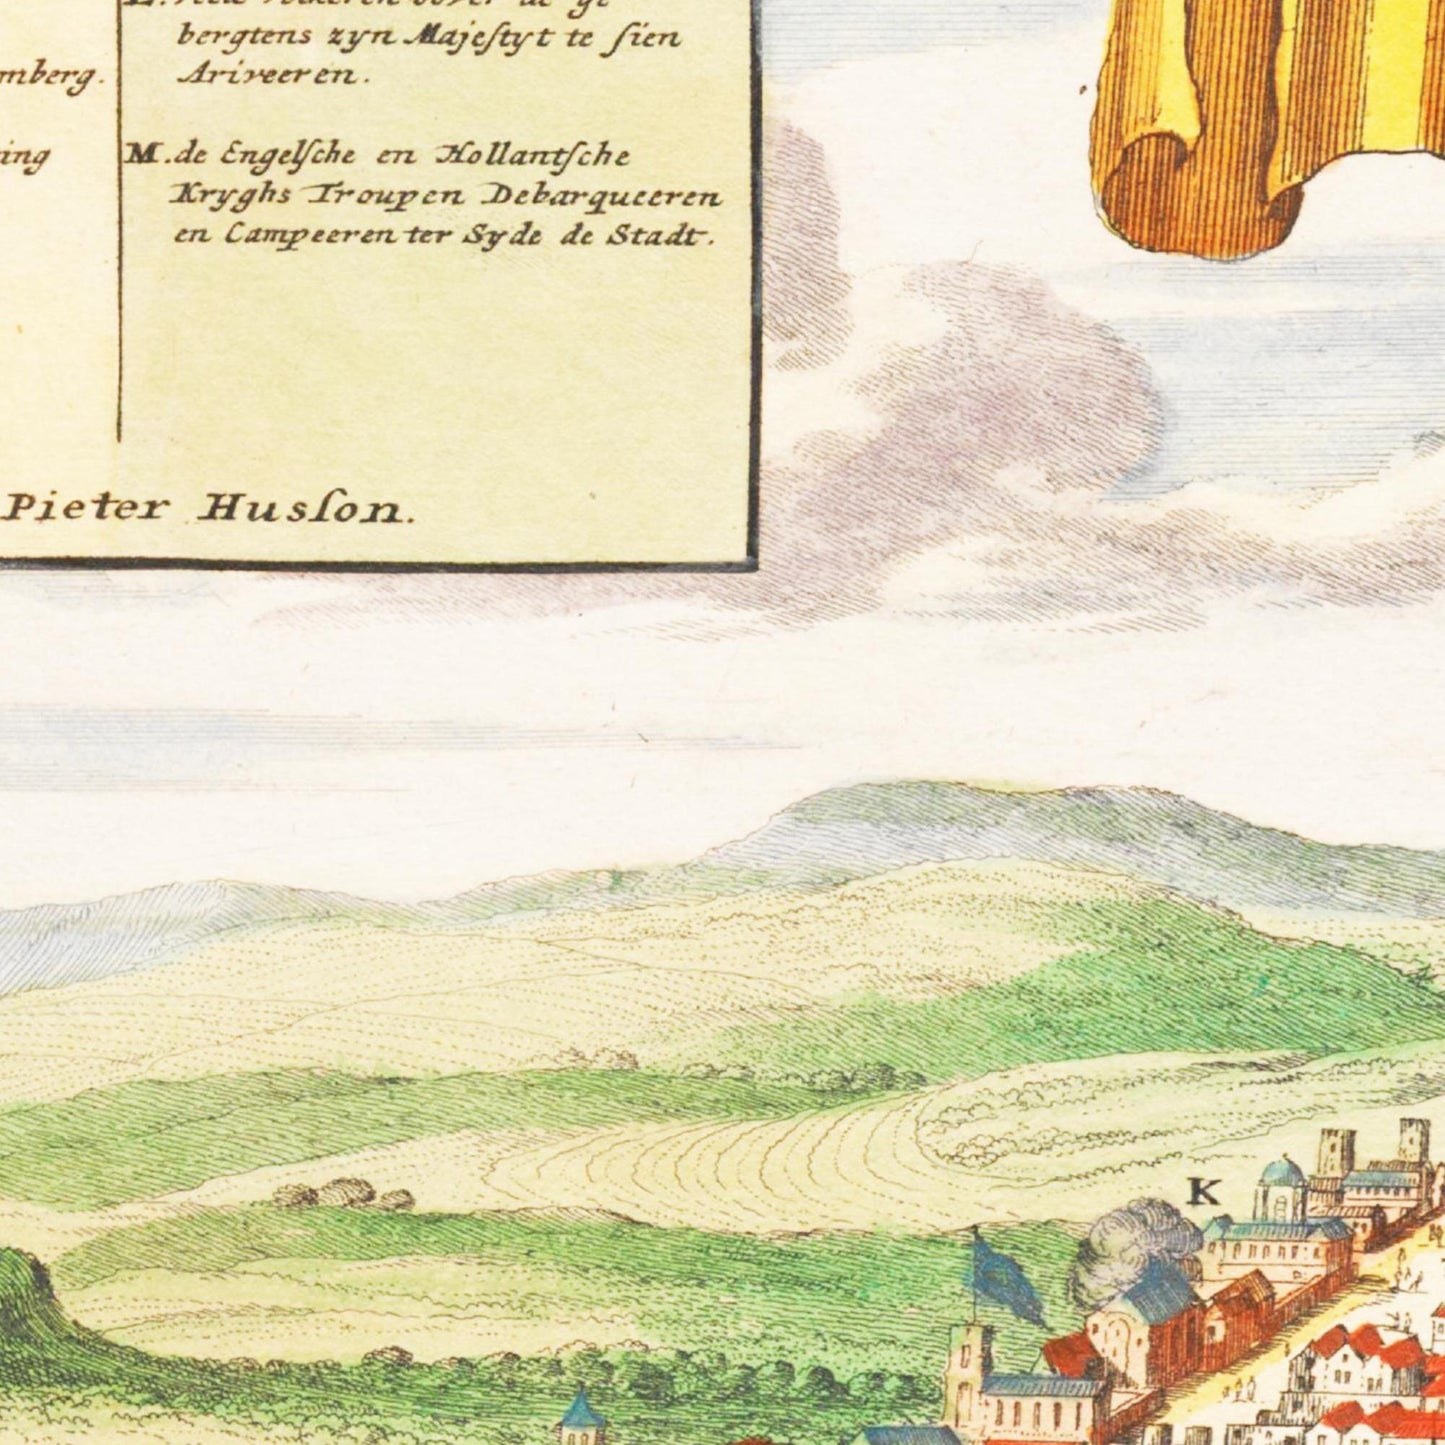 mberg.
ing
L. Veele volkeren oover de ge
bergtens zyn Majeſtyt te ſien
Ariveeren.
M. de Engelſche en Hollantſche
Kryghs Troupen Debarqueeren
en Campeeren ter Syde de Stadt.
Pieter Husſon.
K